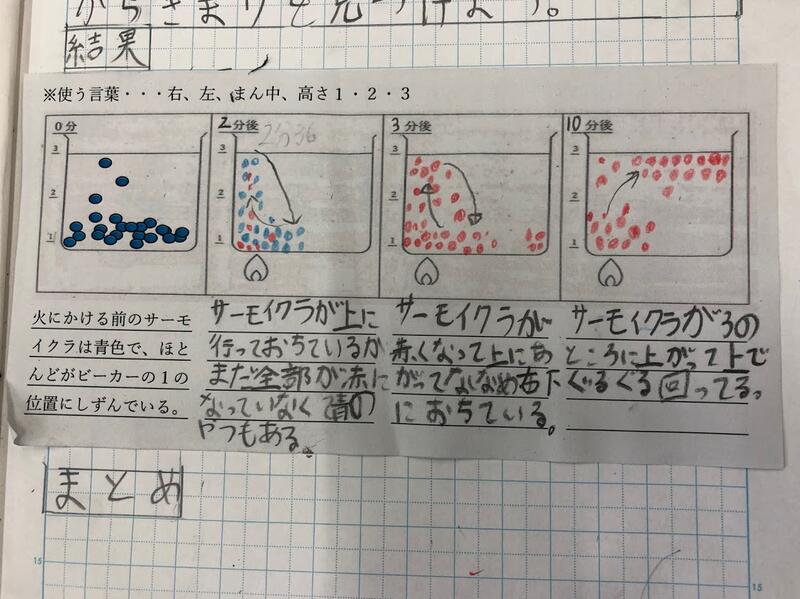 からきまりを見つけよう。
結果
※使う言葉・・・右、左、まん中、高さ１・２・３
0分
2分後
3分後
10分後
2分36
3
2
1
3
2
1
3
2
1
3
2
1
火にかける前のサーモ
イクラは青色で、ほと
んどがビーカーの１の
位置にしずんでいる。
サーモイクラが上に
行っておちているが
まだ全部が赤に
なっていなく青の
やつもある。
サーモイクラが
赤くなって上にあ
がってななめ右下
におちている。
サーモイクラが3の
ところに上がって上で
ぐるぐる回ってる。
まとめ
15
15